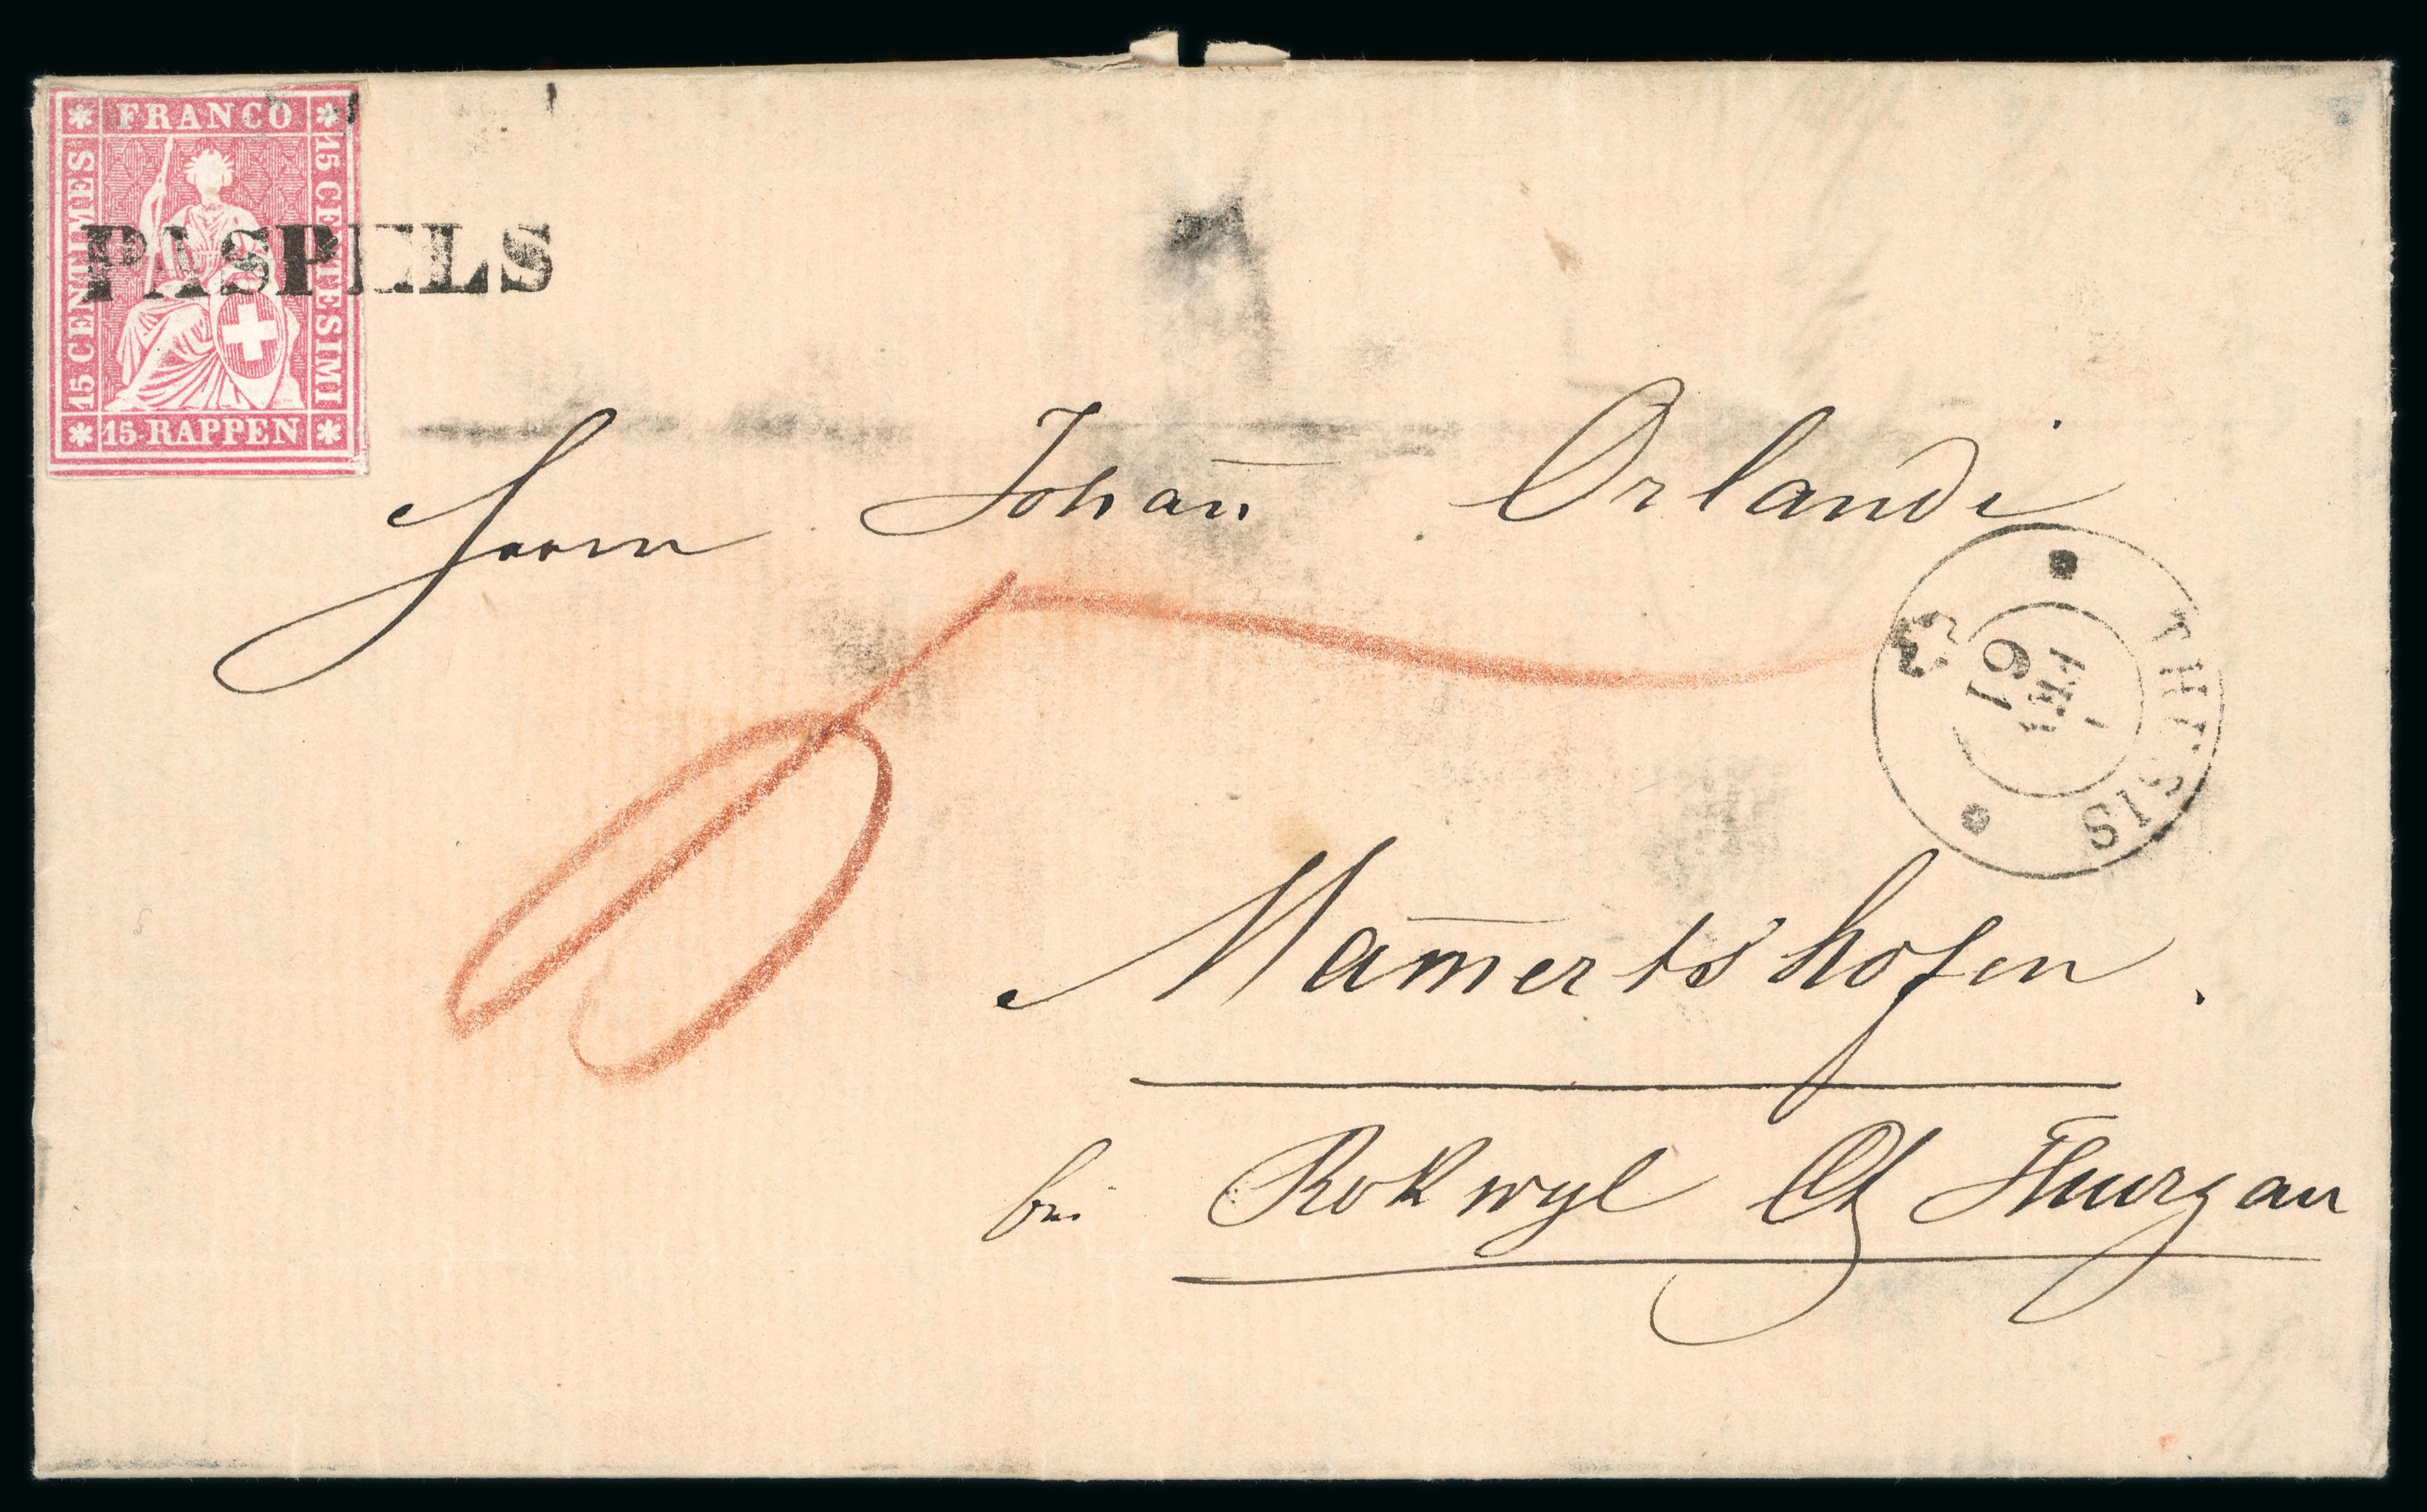 FRANCO
15 CENTIMES
15 CENTESIMI
15 RAPPEN
PASPELS
Herrn Johan̄ Orlandi
THUSIS
FEB
61
Mam̄ertshofen.
bei Rokwyl Ct Thurgau